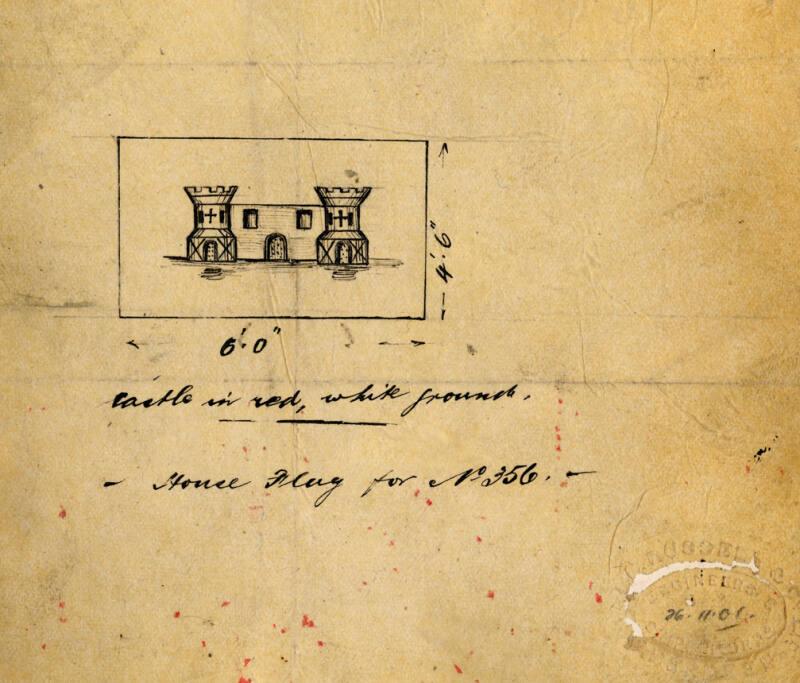 4'.6"
6'.0"
castle in red, white ground.
- House Flag for No 356. -
ENGINEERS
26.11.01.